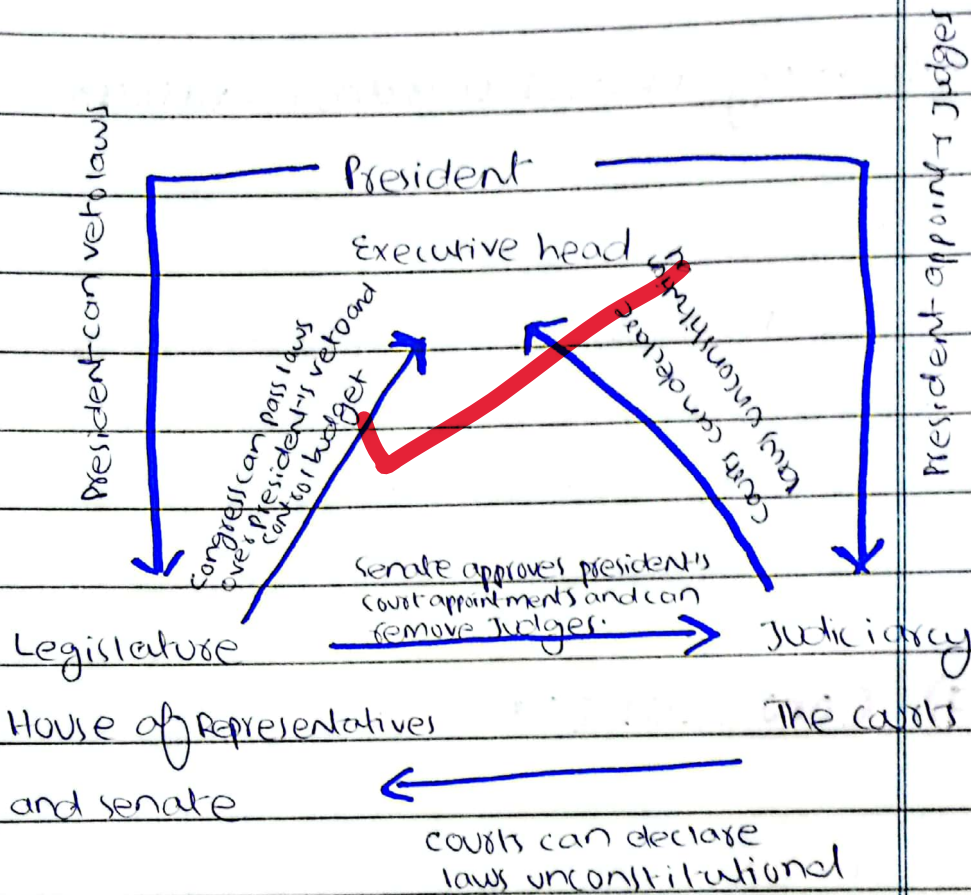 President
Executive head
President can veto laws
President appoint Judges
congress can pass laws
over president's veto and
control budget
courts can declare
laws unconstitutional
Senate approves president's
court appointments and can
remove Judges.
Legislature
Judiciary
House of Representatives
The courts
and senate
courts can declare
laws unconstitutional